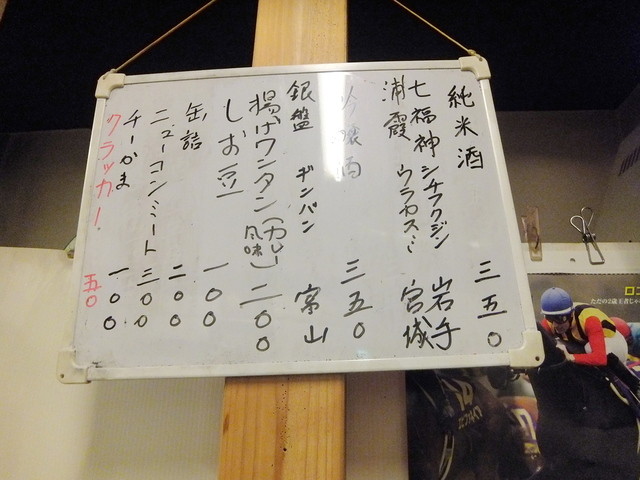 純米酒 三五〇
七福神 シチフクジン 岩手
浦霞 ウラカスミ 宮城
吟醸酒 三五〇
銀盤 ギンバン 富山
揚げワンタン(カレー風味) 二〇〇
しお豆 一〇〇
缶詰 二〇〇
ニューコンミート 三〇〇
チーかま 一〇〇
クラッカー! 五〇
ロゴ